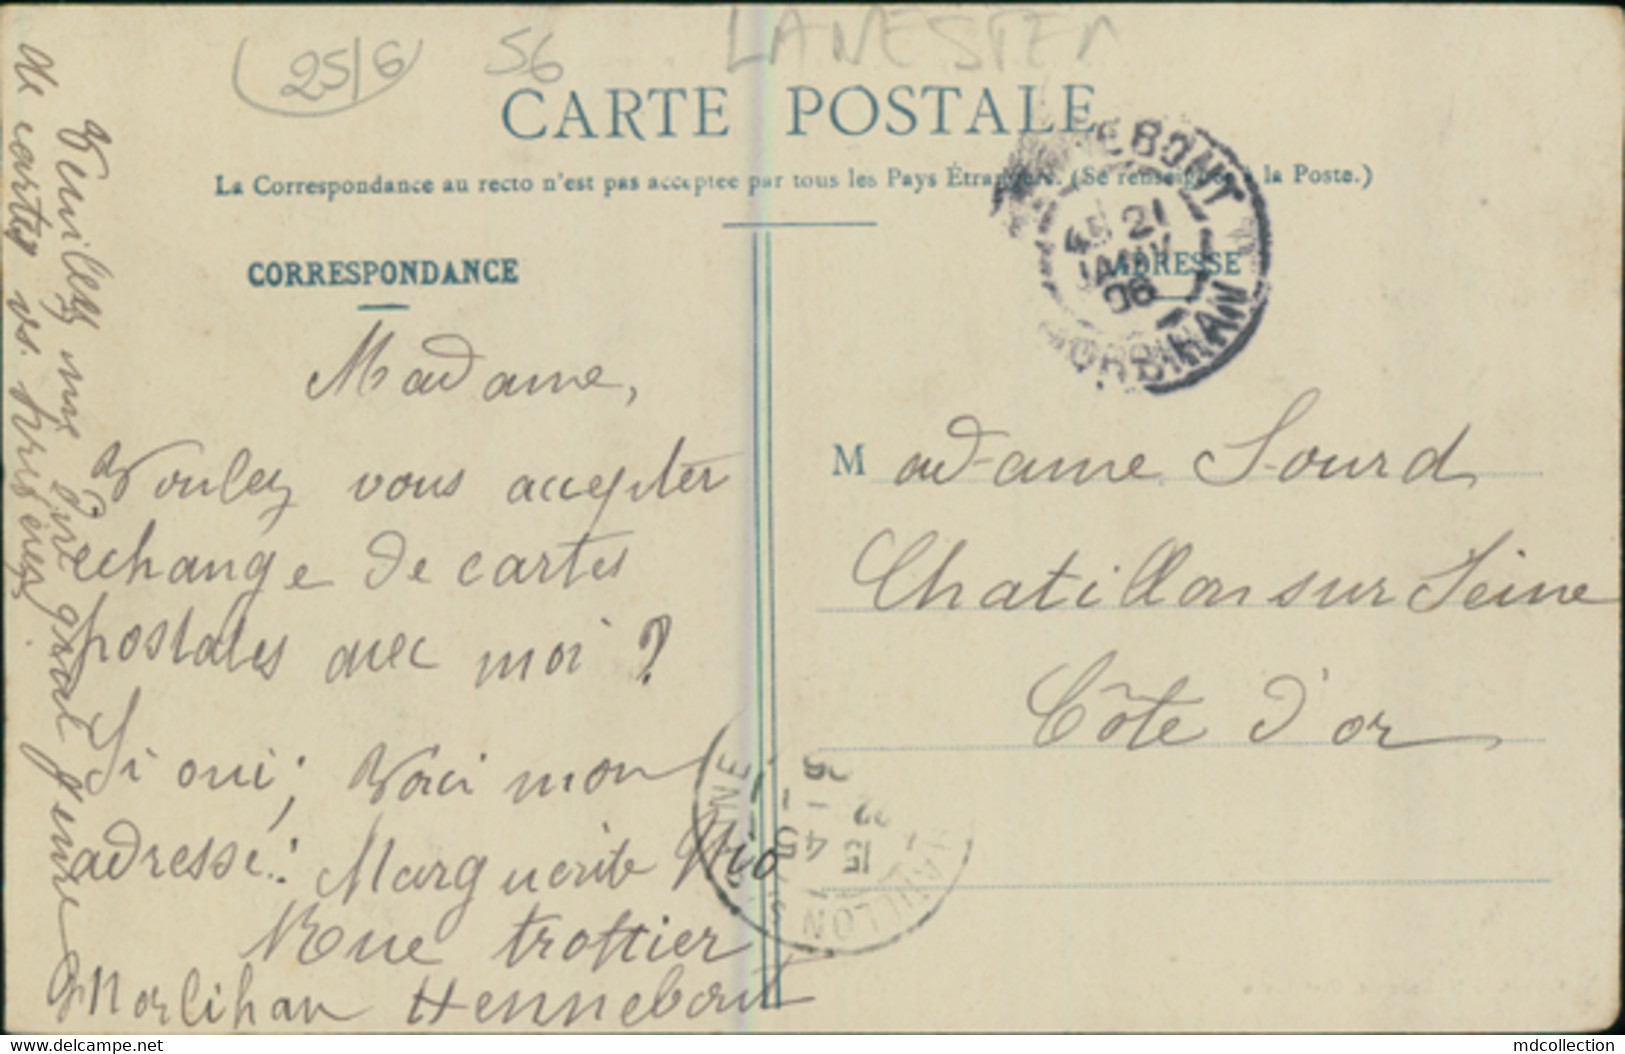 25/6
56
LANESTER
CARTE POSTALE
La Correspondance au recto n'est pas acceptée par tous les Pays Étrangers. (Se renseigner à la Poste.)
CORRESPONDANCE
Madame,
Voulez vous accepter
echange de cartes
postales avec moi ?
Si oui ; Voici mon
adresse : Marguerite Nio
Rue trottier
Morbihan Hennebont
Veuillez me dire quel genre
de cartes vs. préférez.
ADRESSE
M adame Sourd
Chatillon sur Seine
Côte d'or
NEBONT
21
JANV
06
MORBIHAN
CHATILLON S
NE
15 45
22 - 1
06
www.delcampe.net
mdcollection